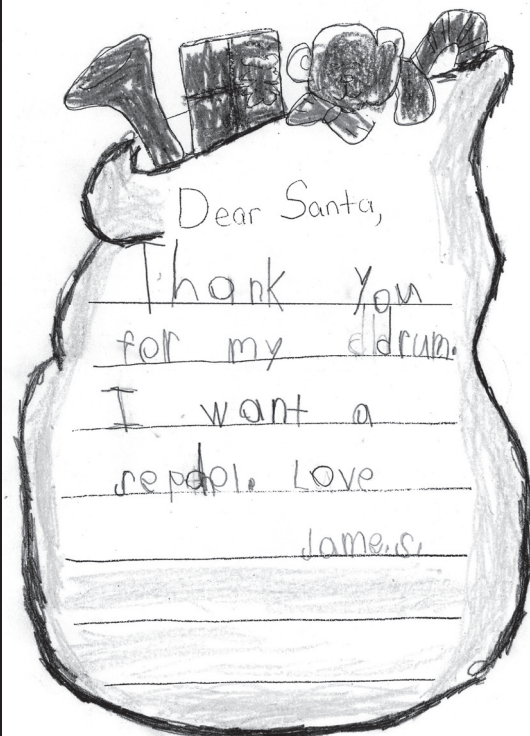 Dear Santa,
Thank you
for my drum.
I want a
Love
James.